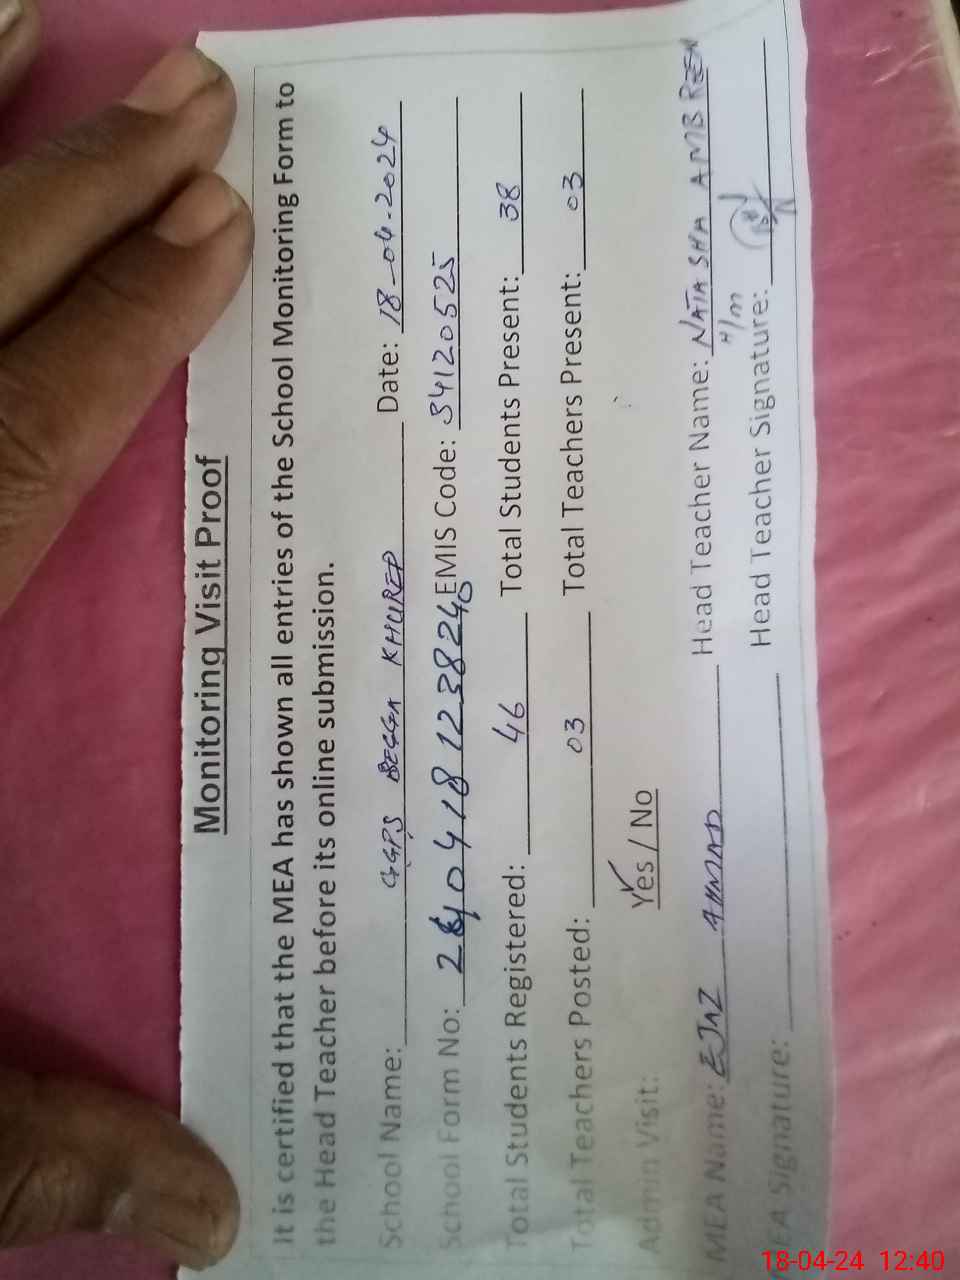 Monitoring Visit Proof
It is certified that the MEA has shown all entries of the School Monitoring Form to
the Head Teacher before its online submission.
School Name: GGPS BEGGA KHUREP Date: 18-04-2024
School Form No: 2404181238240 EMIS Code: 34120525
Total Students Registered: 46 Total Students Present: 38
Total Teachers Posted: 03 Total Teachers Present: 03
Admin Visit: Yes / No
MEA Name: EJAZ AHMAD Head Teacher Name: NATASHA AMBREEN
H/m
MEA Signature: Head Teacher Signature:
18-04-24 12:40